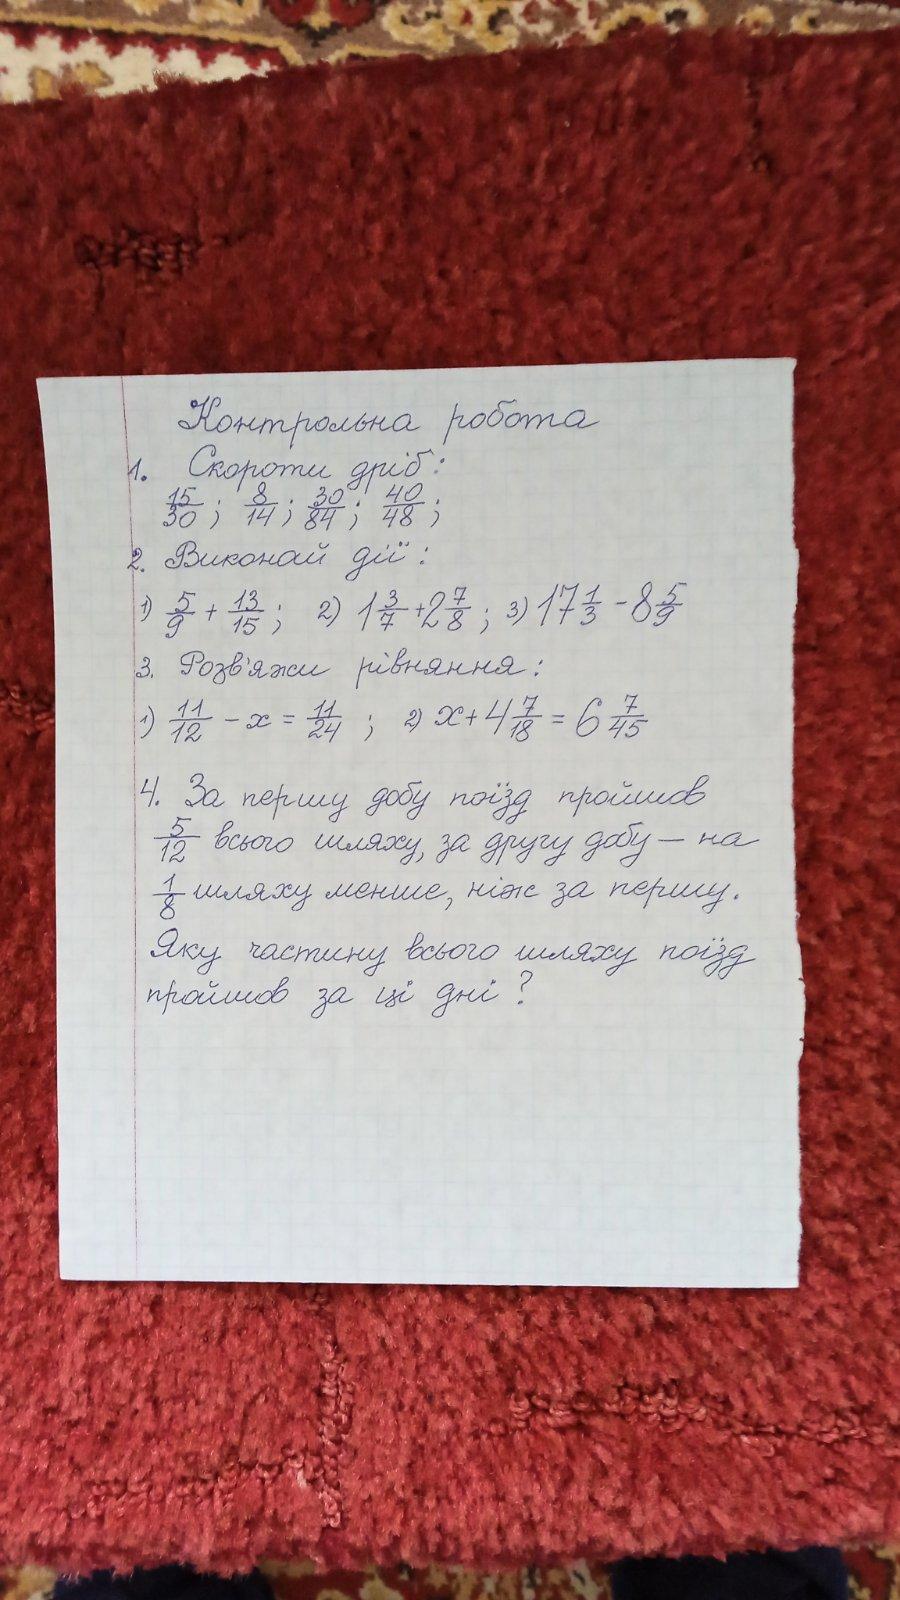 Контрольна робота
1. Скороти дріб:
15/30; 8/14; 30/84; 40/48;
2. Виконай дії:
1) 5/9 + 13/15; 2) 1 3/7 + 2 7/8; 3) 17 1/3 - 8 5/9
3. Розв'яжи рівняння:
1) 11/12 - x = 11/24; 2) x + 4 7/18 = 6 7/45
4. За першу добу поїзд пройшов
5/12 всього шляху, за другу добу — на
1/8 шляху менше, ніж за першу.
Яку частину всього шляху поїзд
пройшов за ці дні?